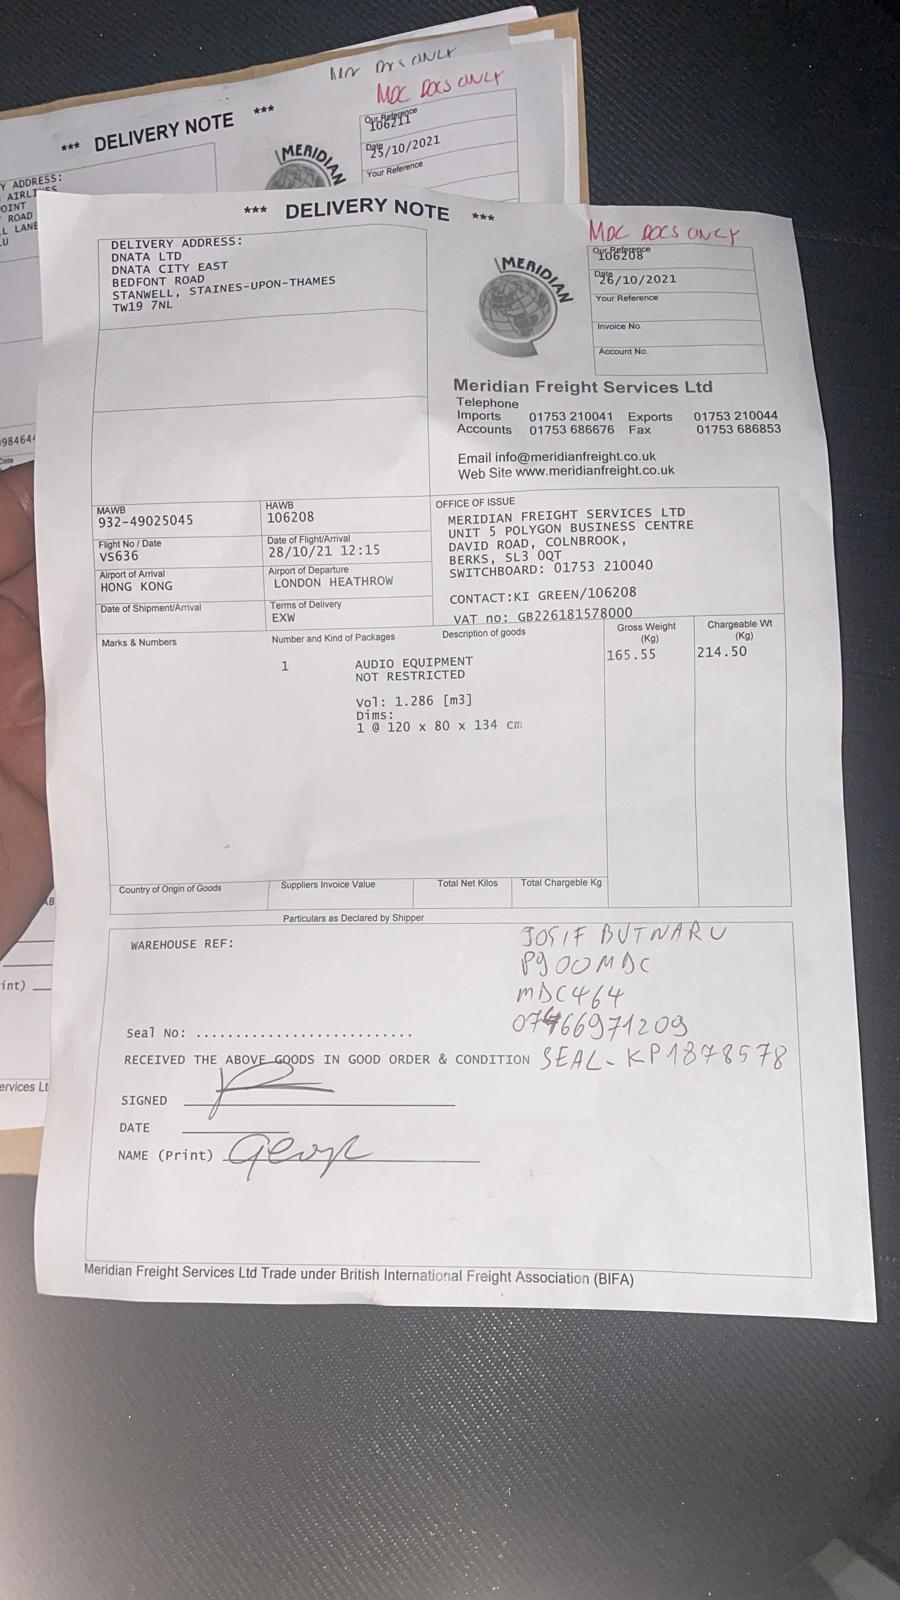 DOCS ONLY
MDC DOCS ONLY
*** DELIVERY NOTE ***
MERIDIAN
Our Reference
106211
Date
25/10/2021
Your Reference
Y ADDRESS:
OINT
ROAD
L LANE
LU
98464
Date
int)
ervices Lt
*** DELIVERY NOTE ***
MDC DOCS ONLY
DELIVERY ADDRESS:
DNATA LTD
DNATA CITY EAST
BEDFONT ROAD
STANWELL, STAINES-UPON-THAMES
TW19 7NL
MERIDIAN
Our Reference
106208
Date
26/10/2021
Your Reference
Invoice No.
Account No.
Meridian Freight Services Ltd
Telephone
Imports 01753 210041 Exports 01753 210044
Accounts 01753 686676 Fax 01753 686853
Email info@meridianfreight.co.uk
Web Site www.meridianfreight.co.uk
MAWB
932-49025045
HAWB
106208
Flight No / Date
VS636
Date of Flight/Arrival
28/10/21 12:15
Airport of Arrival
HONG KONG
Airport of Departure
LONDON HEATHROW
Date of Shipment/Arrival
Terms of Delivery
EXW
OFFICE OF ISSUE
MERIDIAN FREIGHT SERVICES LTD
UNIT 5 POLYGON BUSINESS CENTRE
DAVID ROAD, COLNBROOK,
BERKS, SL3 0QT
SWITCHBOARD: 01753 210040
CONTACT:KI GREEN/106208
VAT no: GB226181578000
Marks & Numbers
Number and Kind of Packages
Description of goods
Gross Weight
(Kg)
Chargeable Wt
(Kg)
1 AUDIO EQUIPMENT 165.55 214.50
NOT RESTRICTED
Vol: 1.286 [m3]
Dims:
1 @ 120 x 80 x 134 cm
Country of Origin of Goods
Suppliers Invoice Value
Total Net Kilos
Total Chargeable Kg
Particulars as Declared by Shipper
WAREHOUSE REF:
JOSIF BUTNARU
P900MDC
MDC464
07466971209
Seal No: ..........................
RECEIVED THE ABOVE GOODS IN GOOD ORDER & CONDITION SEAL-KP1878578
SIGNED
DATE
NAME (Print)
Meridian Freight Services Ltd Trade under British International Freight Association (BIFA)